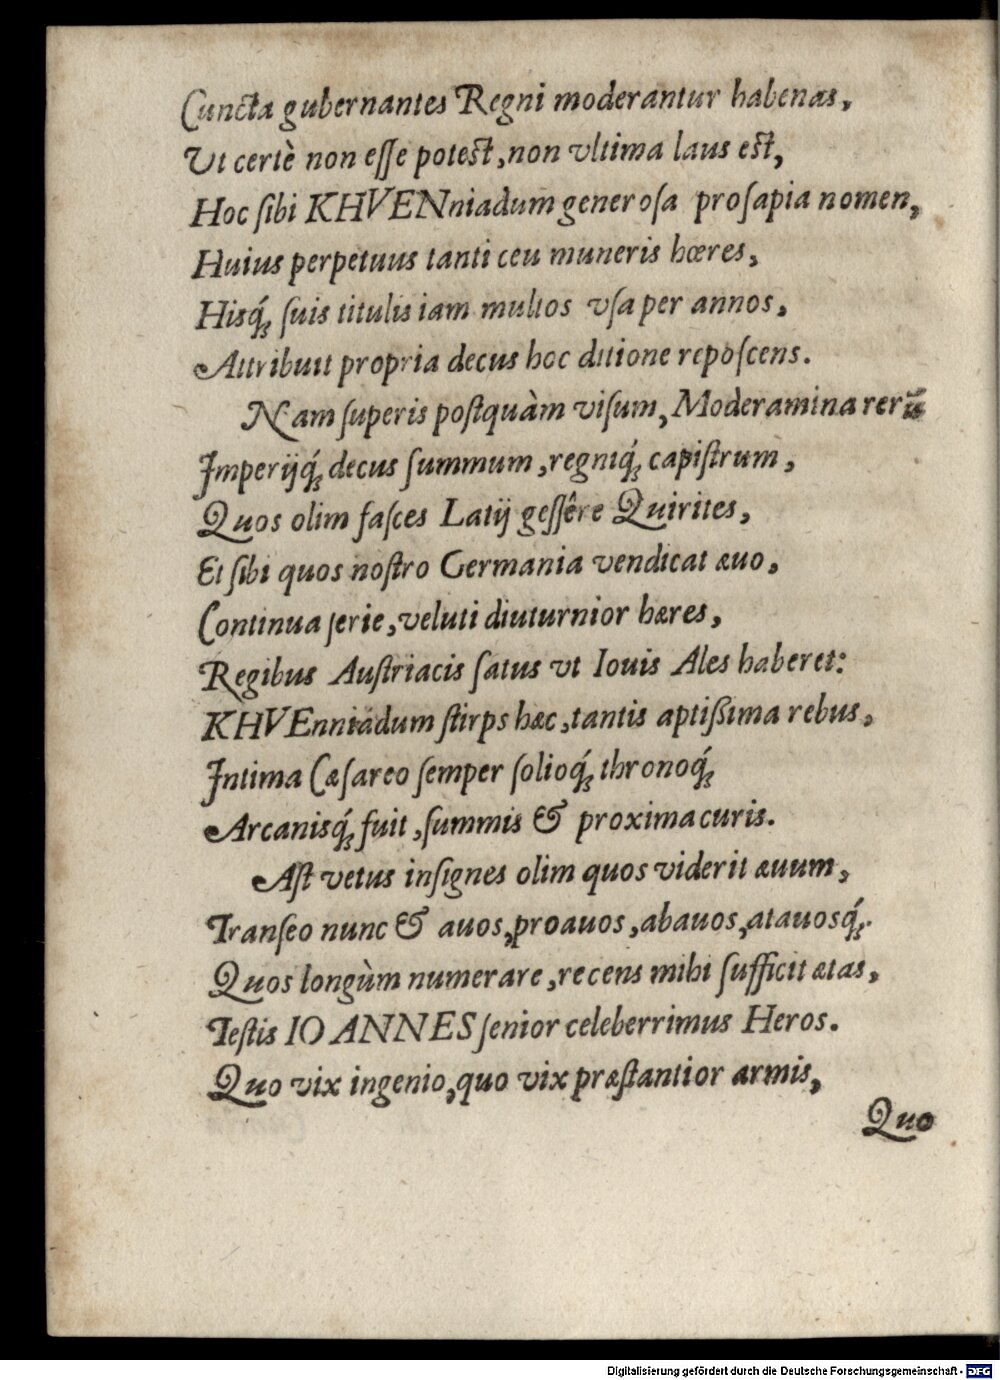 Cuncta gubernantes Regni moderantur habenas,
Ut certè non eſſe poteſt, non vltima laus eſt,
Hoc ſibi KHVENniadum generoſa proſapia nomen,
Huius perpetuus tanti ceu muneris hœres,
Hisq́ꝫ ſuis titulis iam multos vſa per annos,
Attribuit propria decus hoc ditione repoſcens.
Nam ſuperis poſtquàm viſum, Moderamina rerū
Imperijq́ꝫ decus ſummum, regniq́ꝫ capiſtrum,
Quos olim faſces Latij geſſêre Quirites,
Et ſibi quos noſtro Germania vendicat æuo,
Continua ſerie, veluti diuturnior hæres,
Regibus Auſtriacis ſatus vt Iouis Ales haberet:
KHVEnniadum ſtirps hæc, tantis aptißima rebus,
Intima Cæſareo ſemper ſolioq́ꝫ thronoq́ꝫ
Arcanisq́ꝫ fuit, ſummis & proxima curis.
Aſt vetus inſignes olim quos viderit æuum,
Tranſeo nunc & auos, proauos, abauos, atauosq́ꝫ.
Quos longùm numerare, recens mihi ſufficit ætas,
Teſtis IOANNES ſenior celeberrimus Heros.
Quo vix ingenio, quo vix præſtantior armis,
Quo
Digitalisierung gefördert durch die Deutsche Forschungsgemeinschaft - DFG